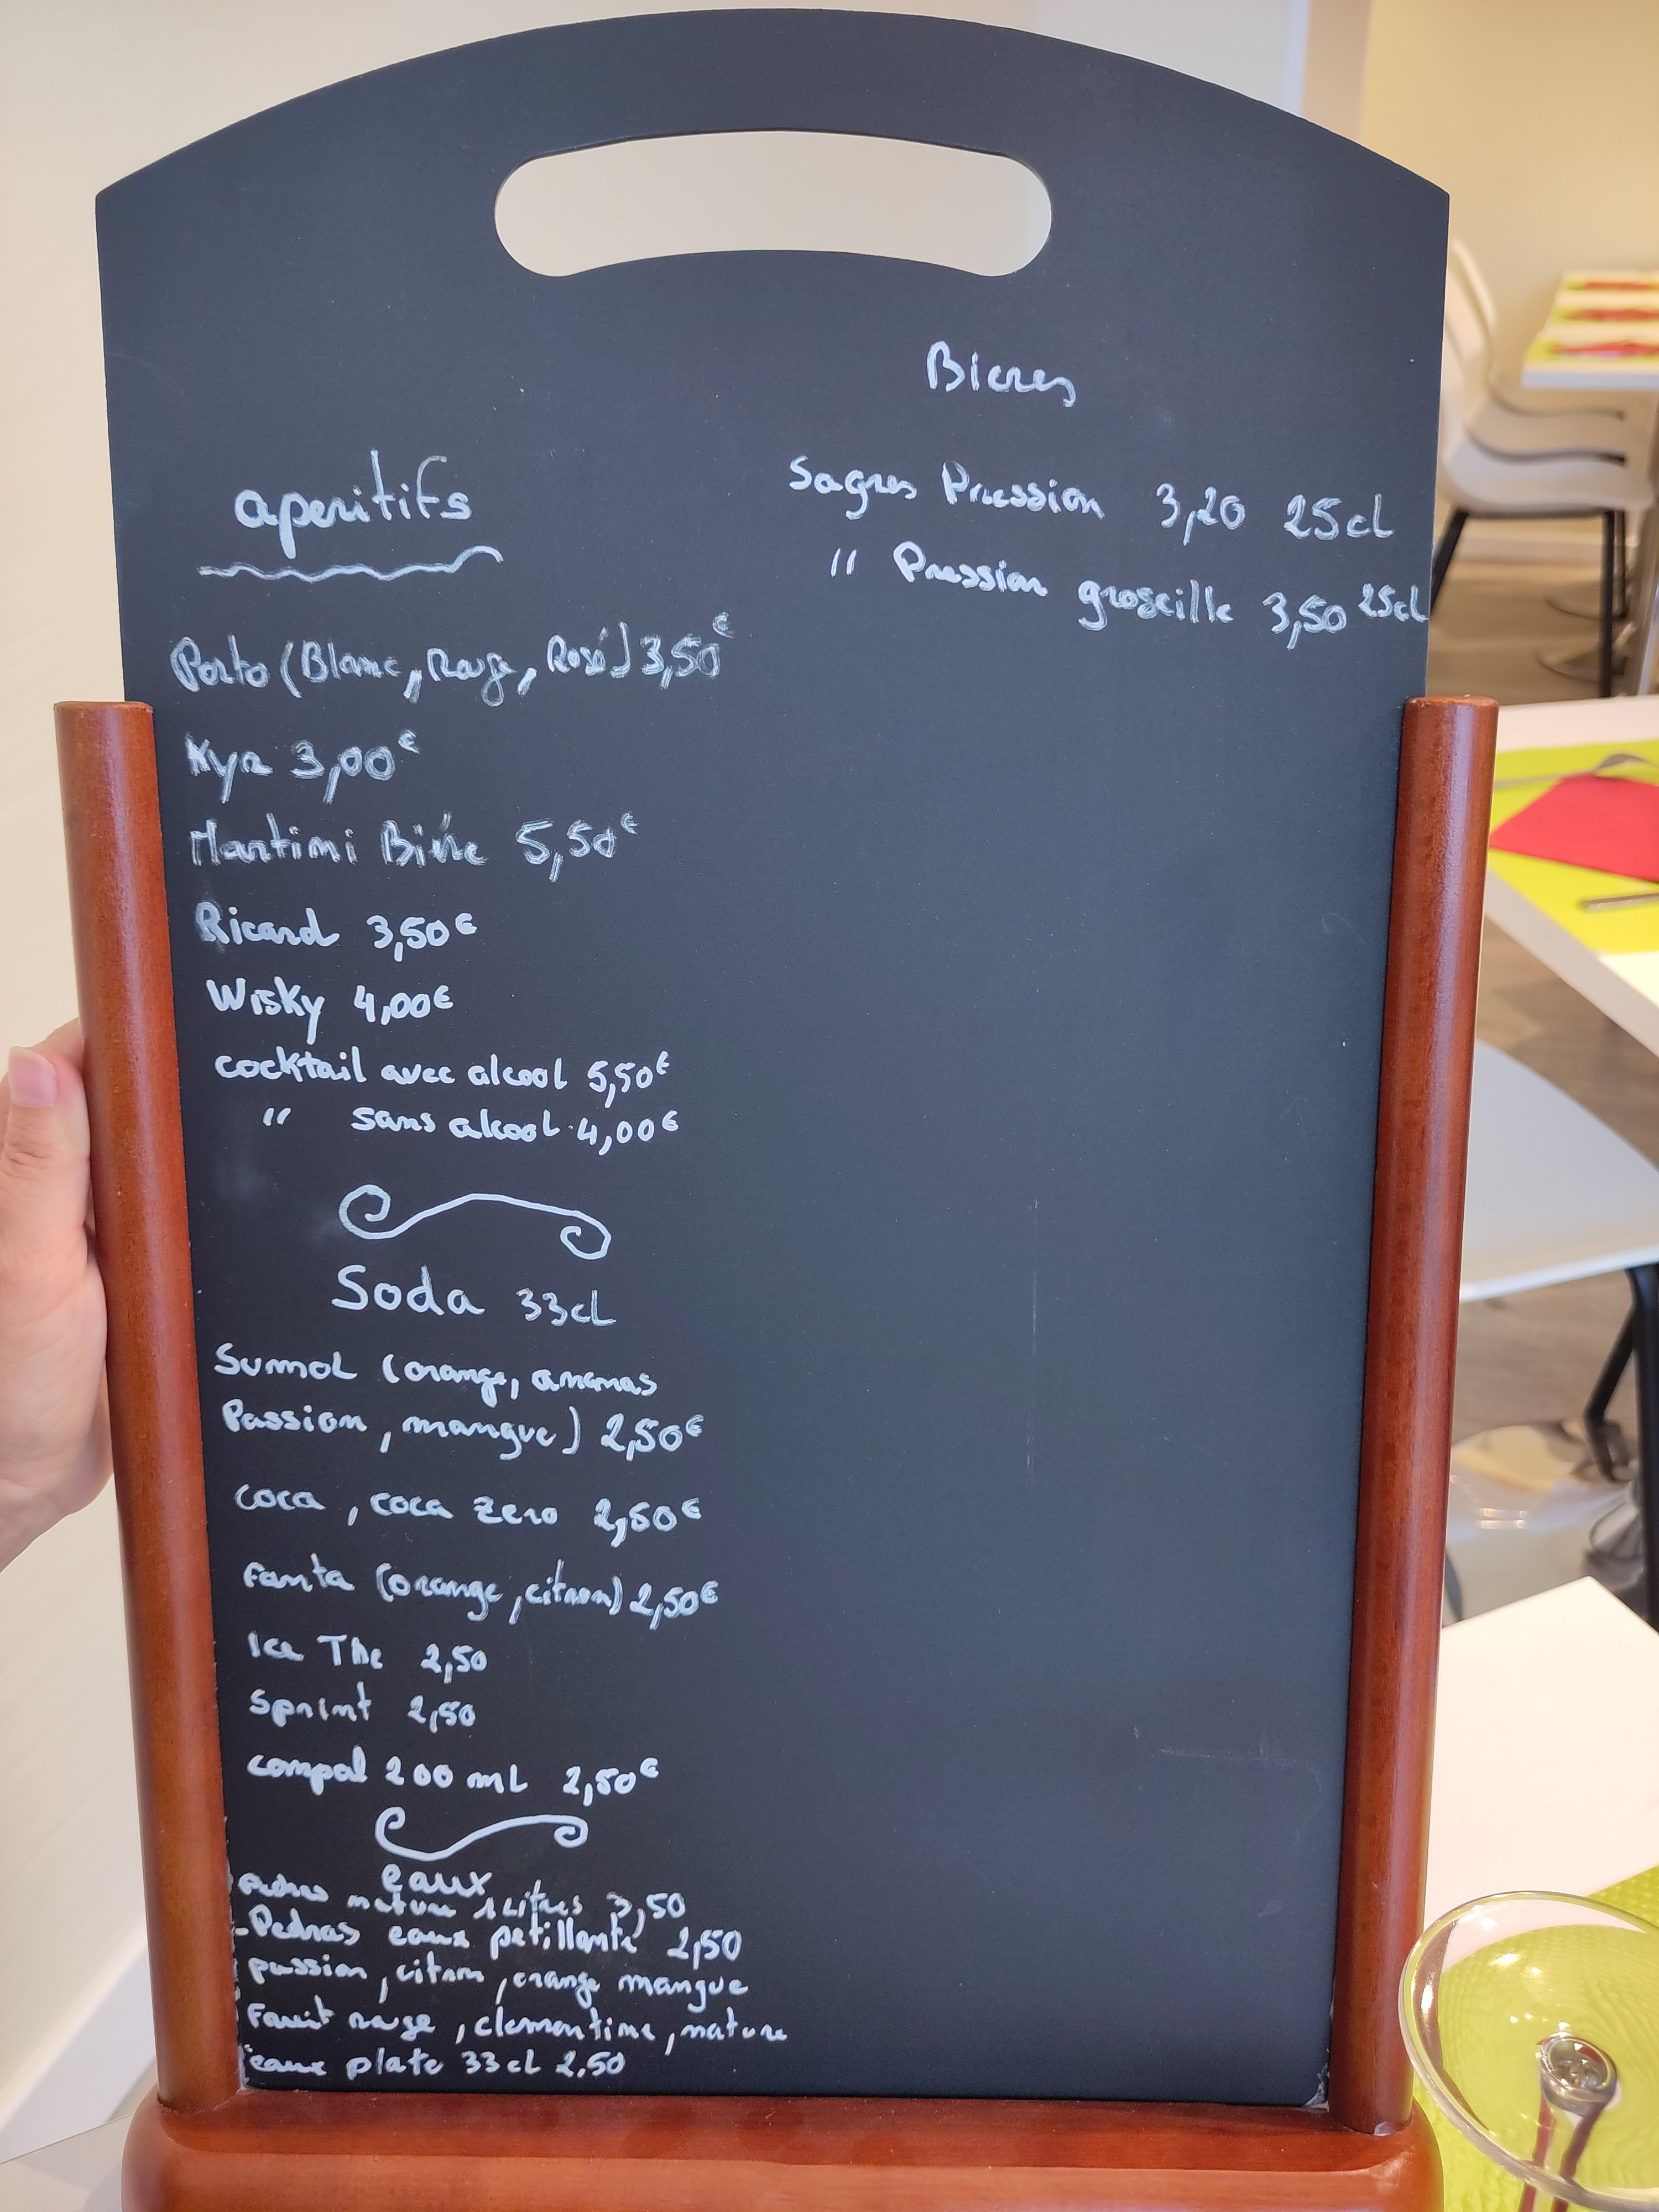 aperitifs
Porto (Blanc, Rouge, Rosé) 3,50€
Kyr 3,00€
Martini Bière 5,50€
Ricard 3,50€
Wisky 4,00€
cocktail avec alcool 5,50€
" sans alcool 4,00€
Soda 33cl
Sumol (orange, ananas
Passion, mangue) 2,50€
coca, coca zero 2,50€
fanta (orange, citron) 2,50€
Ice The 2,50
Sprint 2,50
compal 200 mL 2,50€
eaux
Pedras nature 1 Litres 3,50
-Pedras eaux petillante 2,50
passion, citron, orange mangue
Fruit rouge, clementine, nature
eaux plate 33cl 2.50
Bieres
Sagres Pression 3,20 25cl
" Pression groseille 3,50 25cl